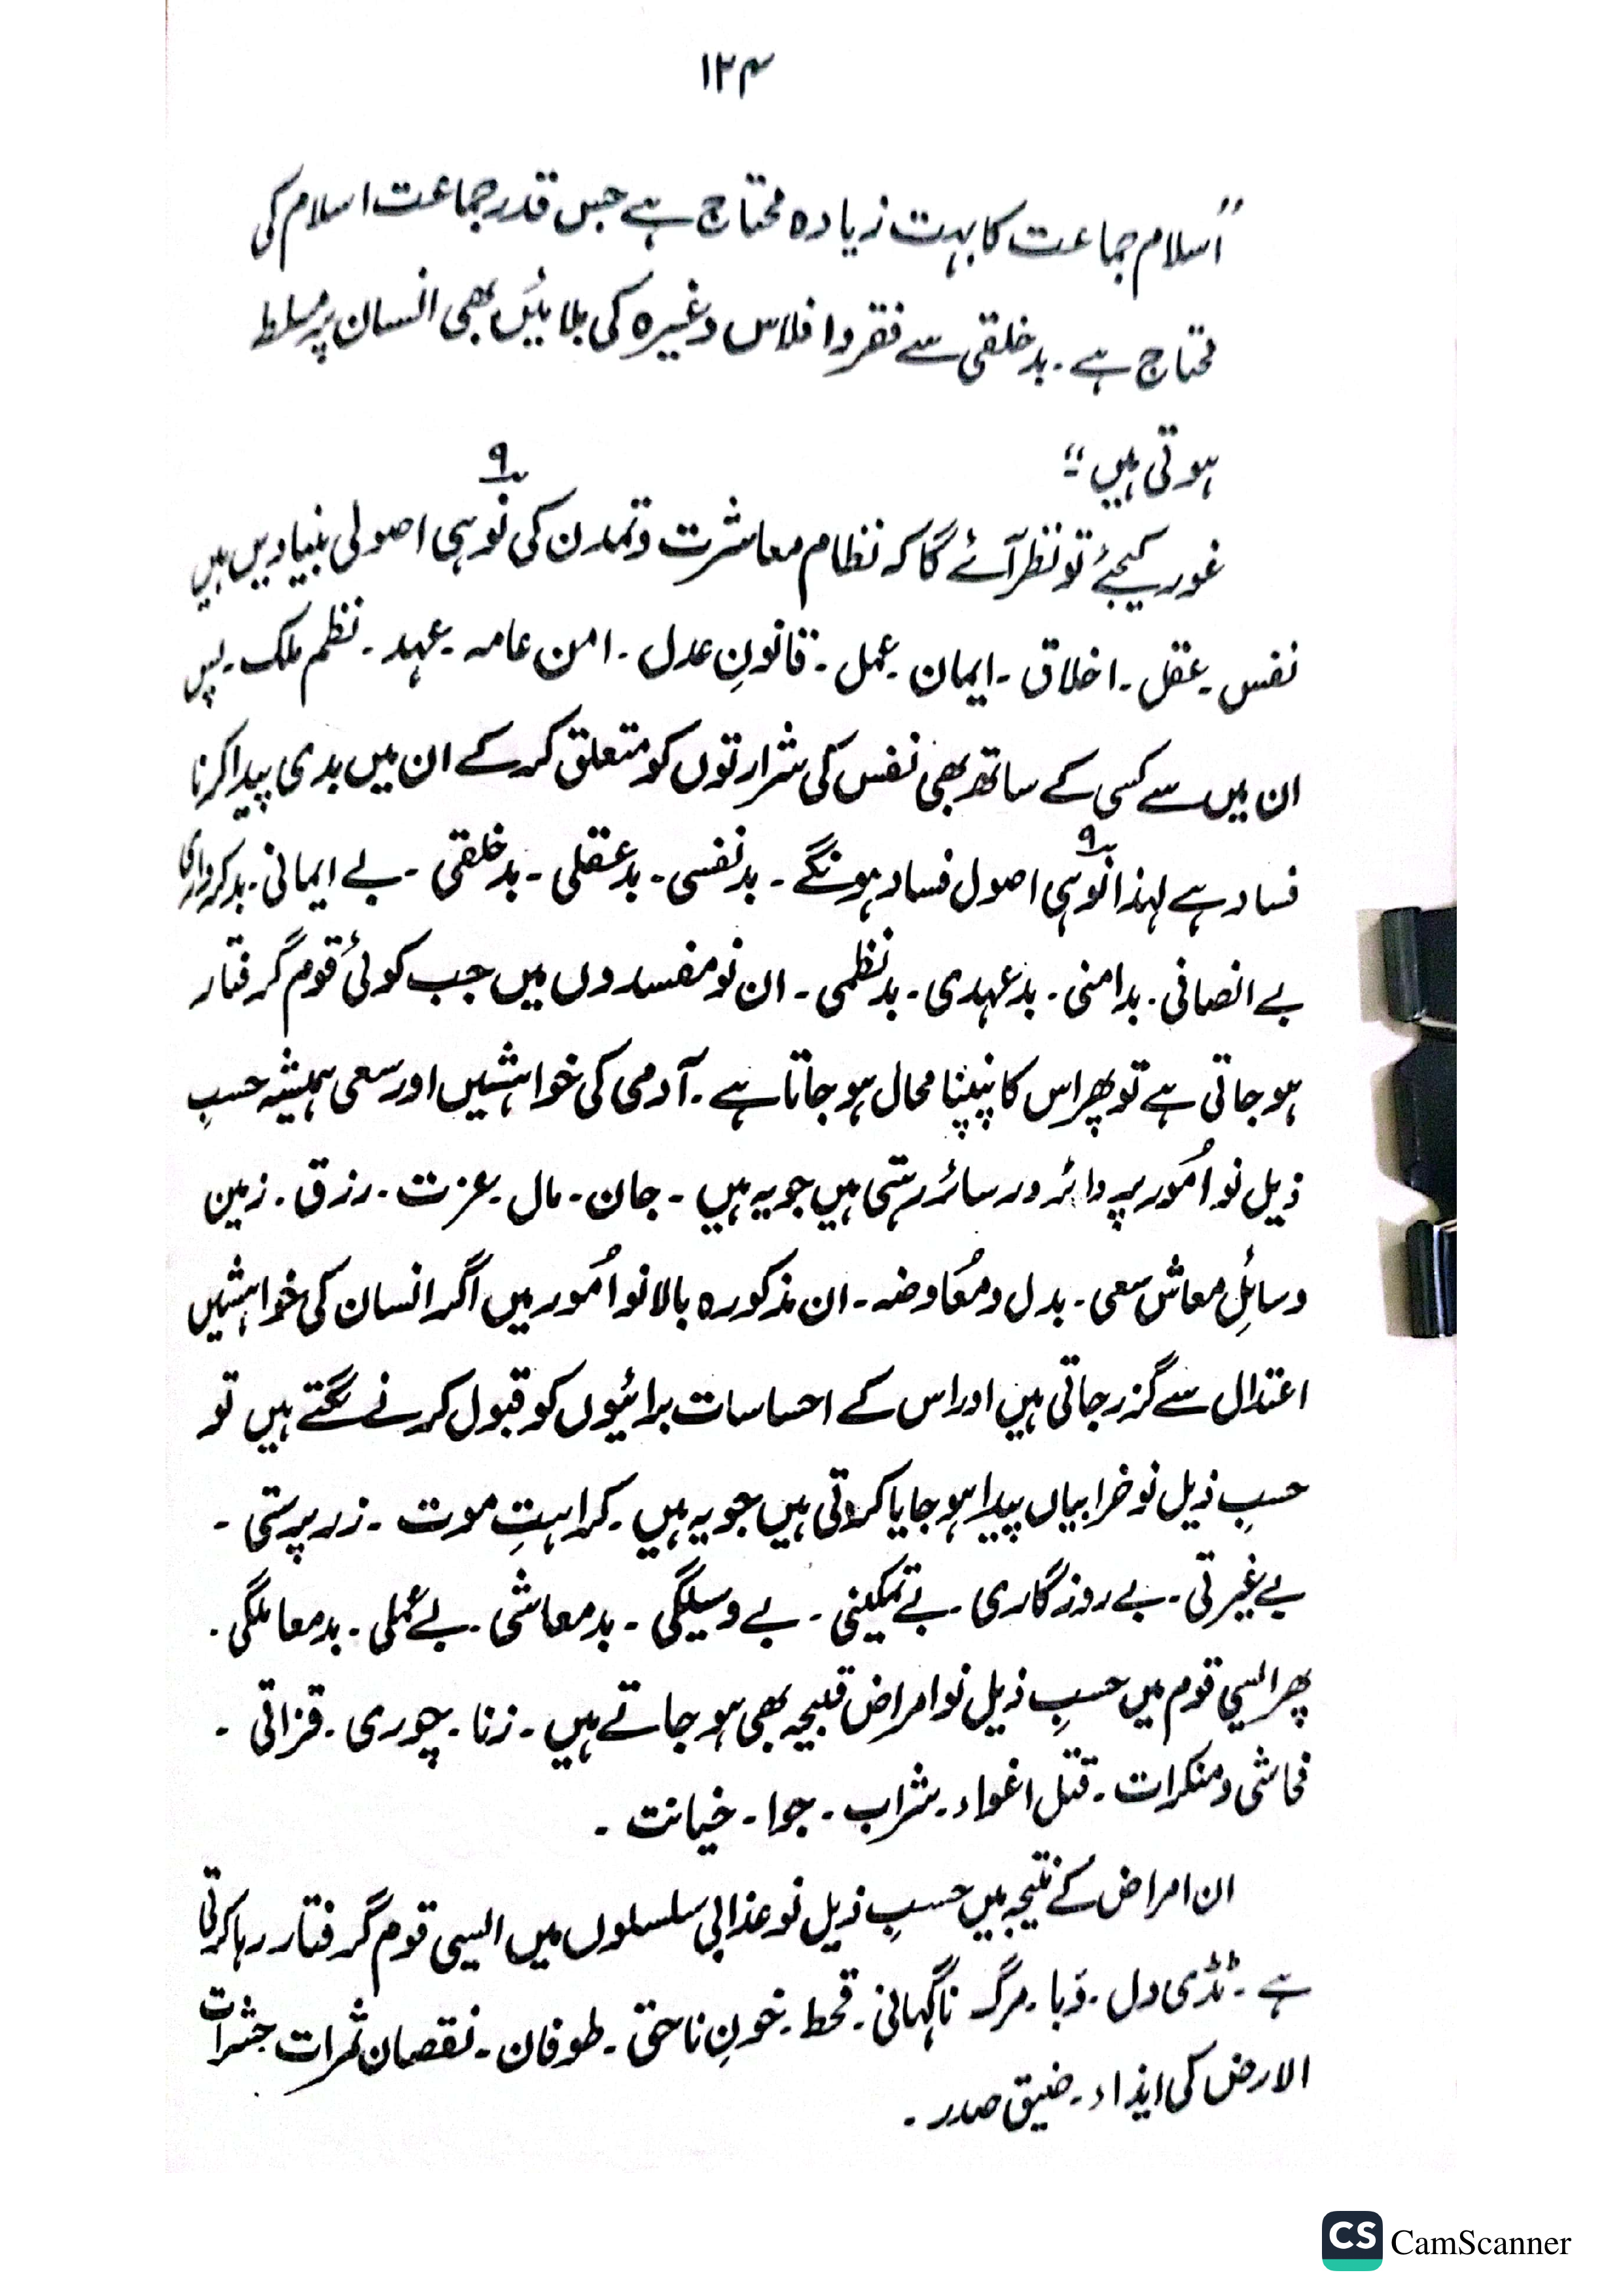 ۱۲۴
"اسلام جماعت کا بہت زیادہ محتاج ہے جس قدر جماعت اسلام کی
محتاج ہے۔ بدخلقی سے فقر و افلاس وغیرہ کی بلائیں بھی انسان پر مسلط
ہوتی ہیں"
۹
غور کیجئے تو نظر آئے گا کہ نظام معاشرت و تمدن کی نو ہی اصولی بنیادیں ہیں
نفس۔ عقل۔ اخلاق۔ ایمان۔ عمل۔ قانونِ عدل۔ امن عامہ۔ عہد۔ نظم ملک۔ پس
ان میں سے کسی کے ساتھ بھی نفس کی شرارتوں کو متعلق کر کے ان میں بدی پیدا کرنا
۹
فساد ہے لہذا نو ہی اصول فساد ہونگے۔ بدنفسی۔ بدعقلی۔ بدخلقی۔ بے ایمانی۔ بدکرداری
بے انصافی۔ بدامنی۔ بدعہدی۔ بدنظمی۔ ان نو مفسدوں میں جب کوئی قوم گرفتار
ہو جاتی ہے تو پھر اس کا پنپنا محال ہو جاتا ہے۔ آدمی کی خواہشیں اور سعی ہمیشہ حسبِ
ذیل نو اُمور پر دائر و سائر رہتی ہیں جو یہ ہیں۔ جان۔ مال۔ عزت۔ رزق۔ زمین
وسائلِ معاش سعی۔ بدل و مُعاوضہ۔ ان مذکورہ بالا نو اُمور میں اگر انسان کی خواہشیں
اعتدال سے گزر جاتی ہیں اور اس کے احساسات برائیوں کو قبول کرنے لگتے ہیں تو
حسبِ ذیل نو خرابیاں پیدا ہو جایا کرتی ہیں جو یہ ہیں۔ کراہتِ موت۔ زرپرستی۔
بے غیرتی۔ بے روزگاری۔ بے تمکینی۔ بے وسیلگی۔ بدمعاشی۔ بے عملی۔ بدمعاملگی۔
پھر ایسی قوم میں حسبِ ذیل نو امراض قبیحہ بھی ہو جاتے ہیں۔ زنا۔ چوری۔ قزاقی۔
فحاشی و منکرات۔ قتل اغواء۔ شراب۔ جوا۔ خیانت۔
ان امراض کے نتیجہ میں حسبِ ذیل نو عذابی سلسلوں میں ایسی قوم گرفتار رہا کرتی
ہے۔ ٹڈی دل۔ وَبا۔ مرگ ناگہانی۔ قحط۔ خونِ ناحق۔ طوفان۔ نقصان ثمرات حشرات
الارض کی ایذاء۔ ضیق صدر۔
CS CamScanner